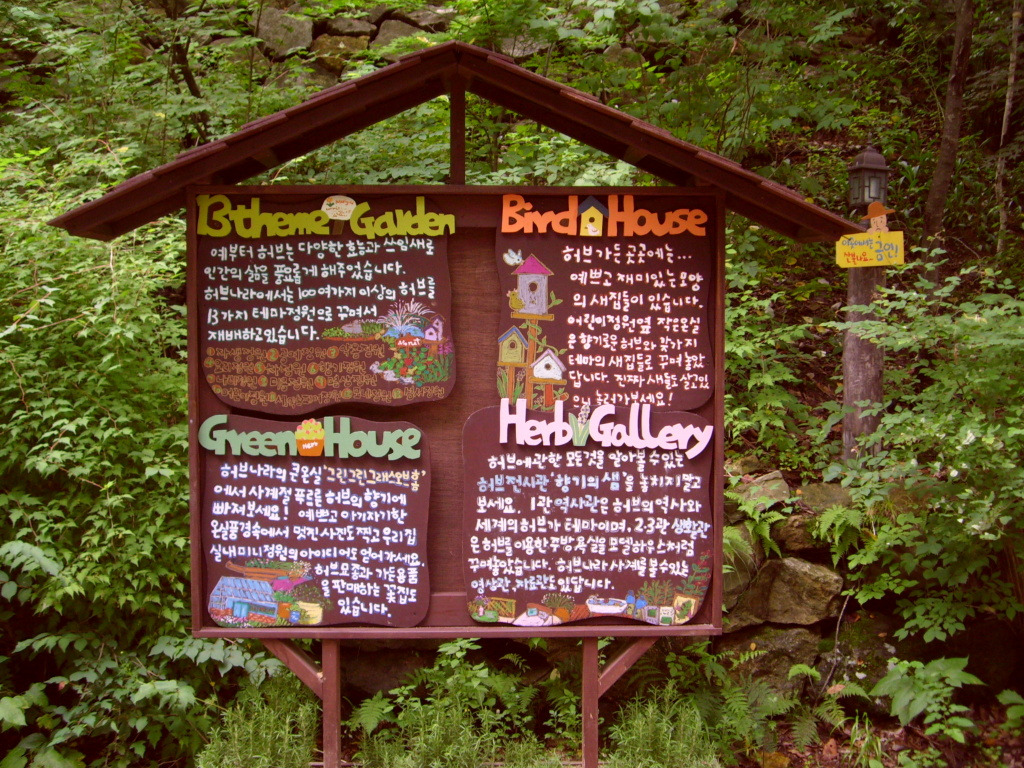 13 theme Garden
예부터 허브는 다양한 효능과 쓰임새로
인간의 삶을 풍요롭게 해주었습니다.
허브나라에서는 100여가지 이상의 허브를
13가지 테마정원으로 꾸며서
재배하고있습니다.
Bird House
허브가든 곳곳에는...
예쁘고 재미있는 모양
의 새집들이 있습니다.
어린이정원옆 작은온실
은 향기로운 허브와 각가지
테마의 새집들로 꾸며 놓았
답니다. 진짜 새들도 살고있
으니 놀러가보세요!
Green House
Herb
허브나라의 큰온실 '그린그린그래스오브홈'
에서 사계절 푸르른 허브의 향기에
빠져보세요! 예쁘고 아기자기한
온실풍경속에서 멋진사진도 찍고 우리집
실내미니정원의 아이디어도 얻어가세요.
허브모종과 가든용품
을 판매하는 꽃집도
있습니다.
Herb Gallery
허브에관한 모든것을 알아볼수있는
허브전시관 '향기의 샘'을 놓치지말고
보세요. 1관 역사관은 허브의 역사와
세계의 허브가 테마이며, 2·3관 생활관
은 허브를 이용한 주방욕실을 모델하우스처럼
꾸며놓았습니다. 허브나라 사계를 볼수있는
영상관, 자료관도 있답니다.
금연!